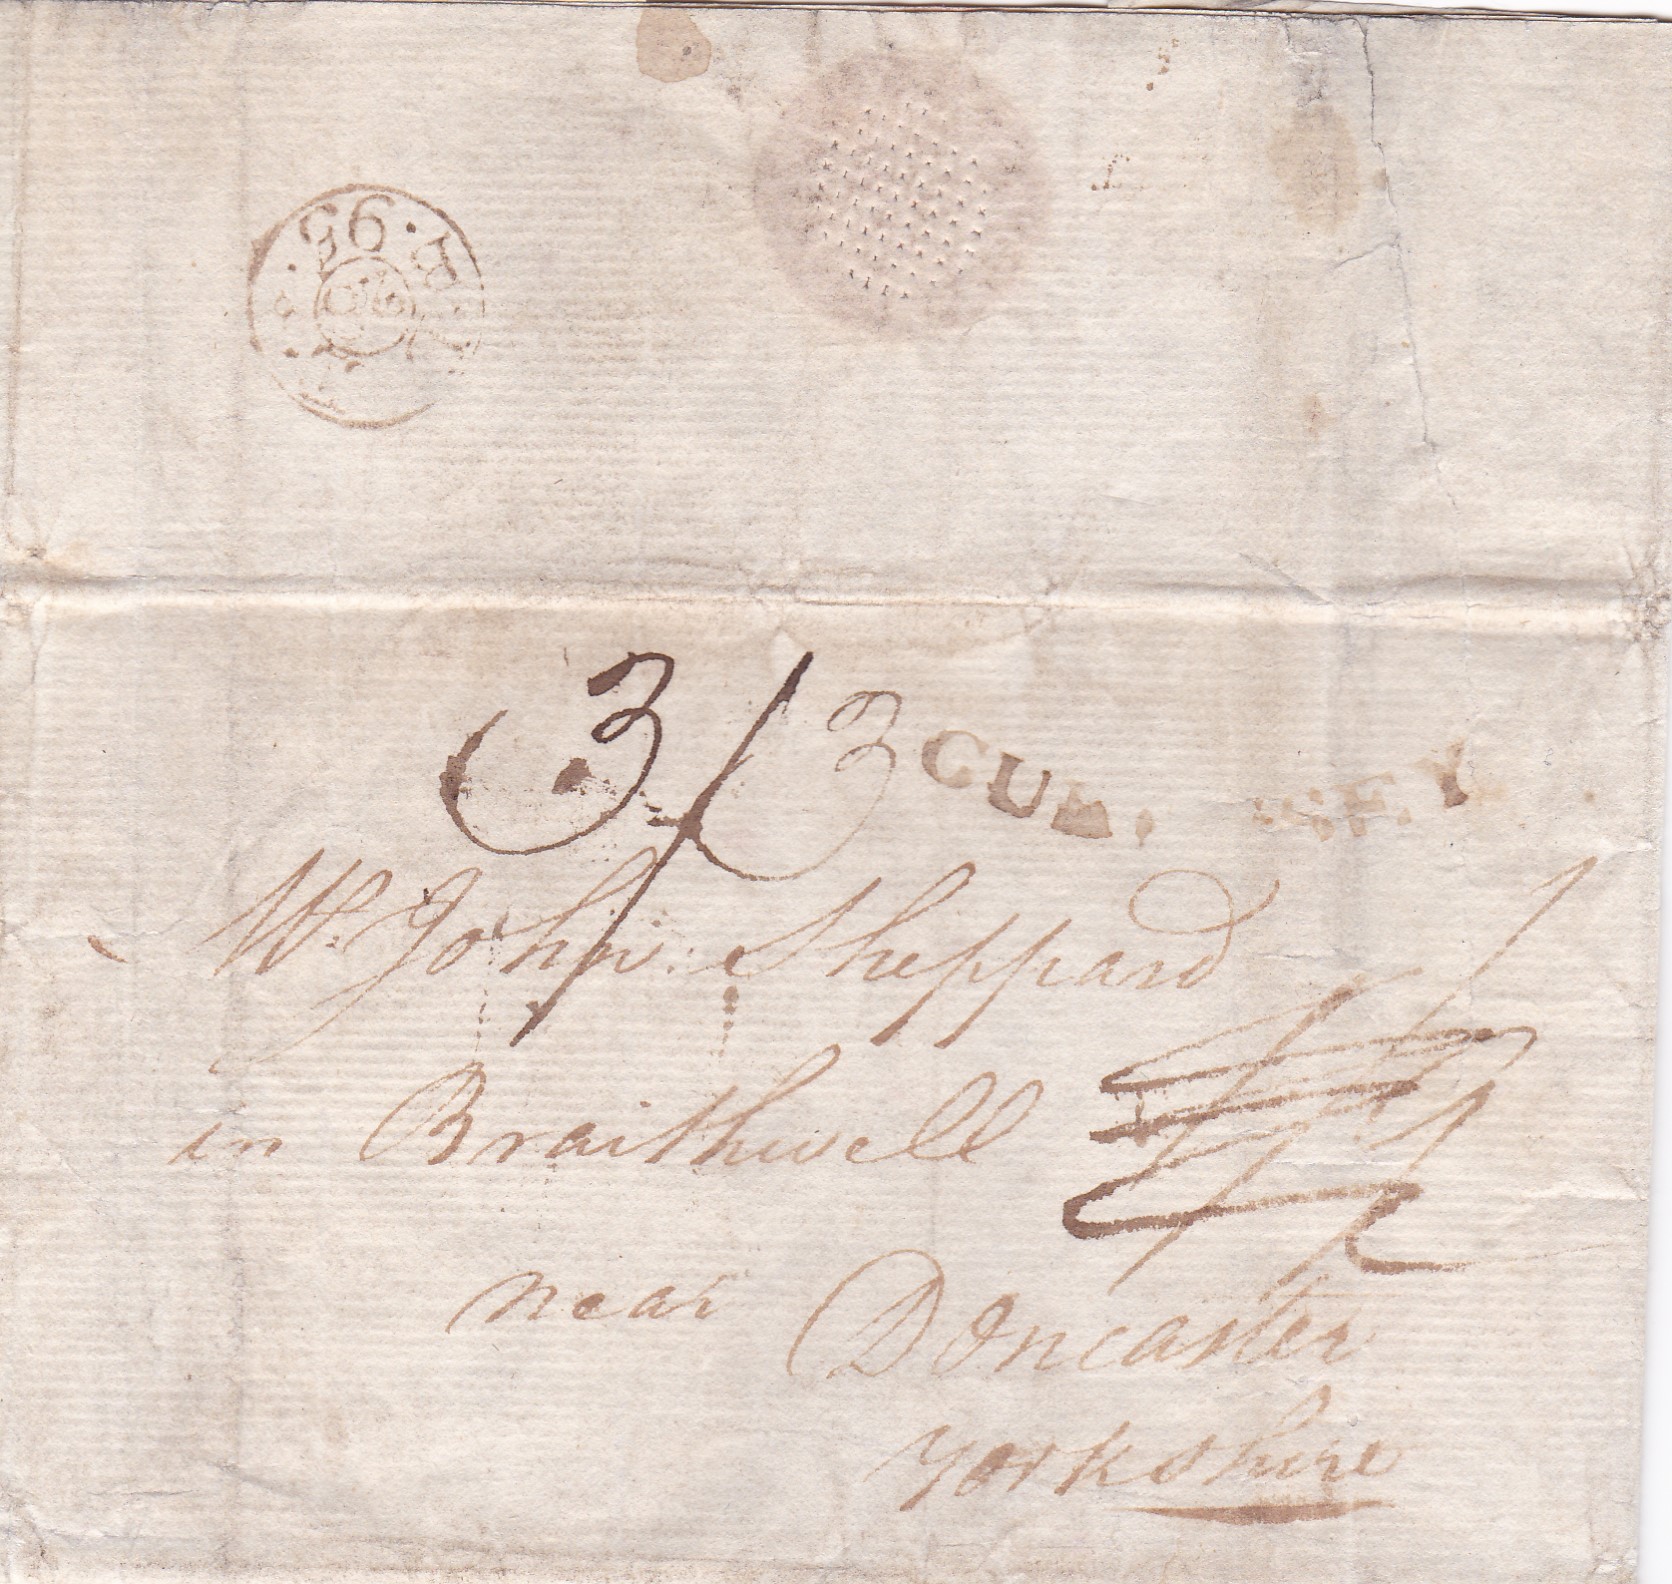 3/3
Mr. John Sheppard
in Braithwell
near Doncaster
Yorkshire